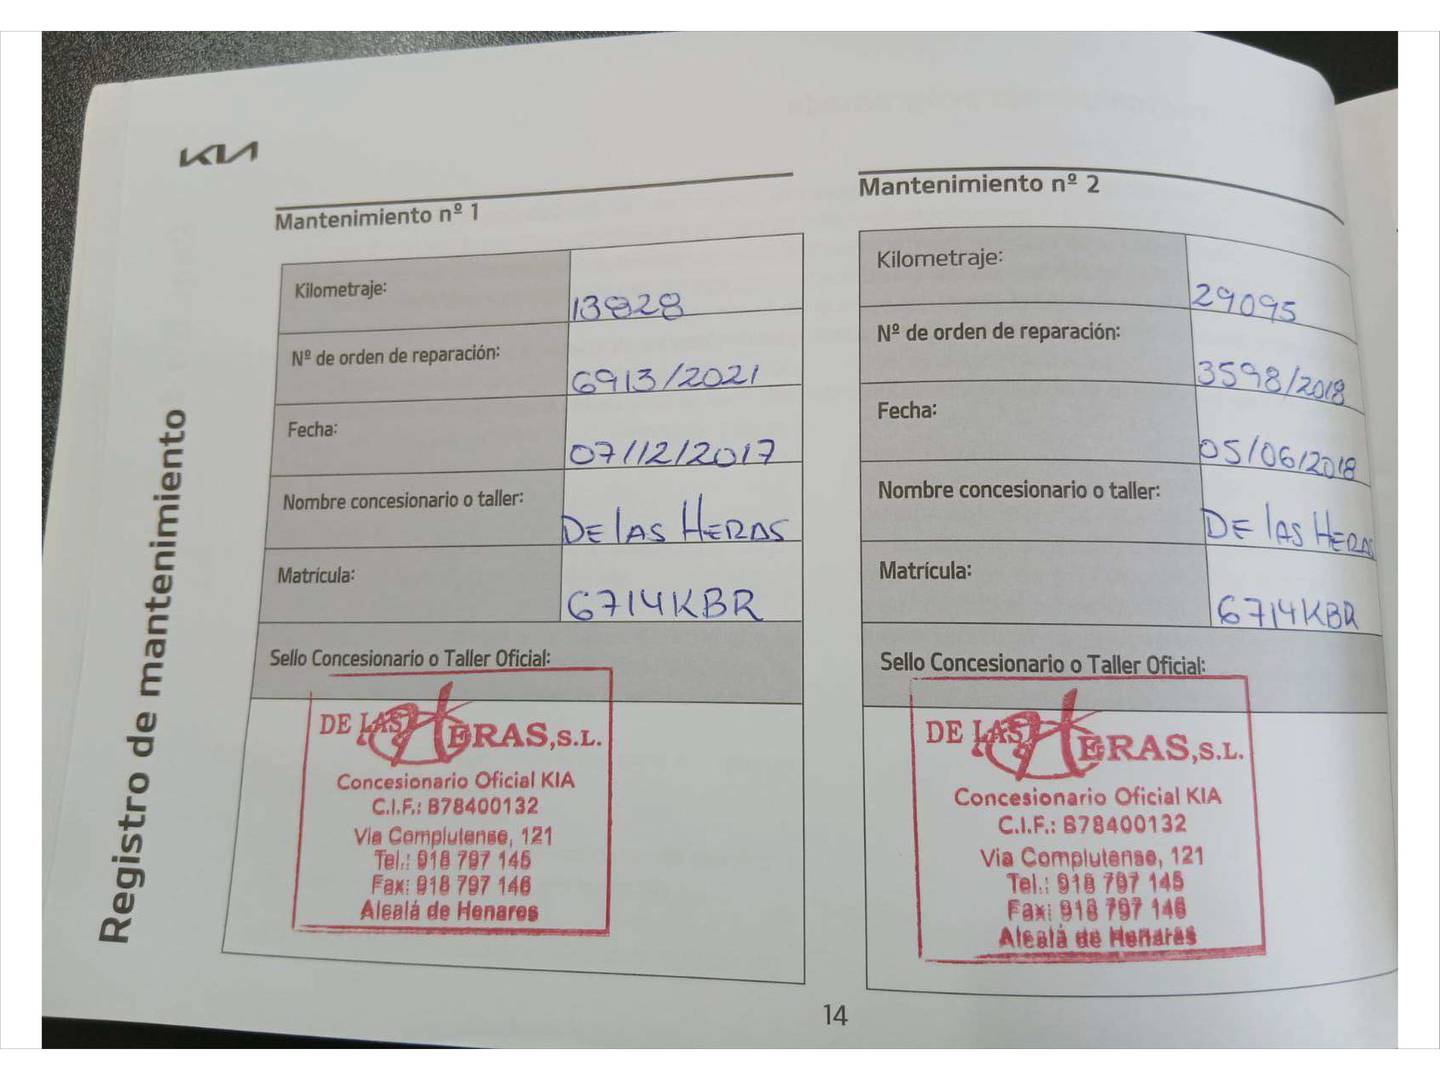 KIA
Registro de mantenimiento
Mantenimiento nº 1
Kilometraje:
13828
Nº de orden de reparación:
6913/2021
Fecha:
07/12/2017
Nombre concesionario o taller:
DE lAS HERAS
Matrícula:
6714KBR
Sello Concesionario o Taller Oficial:
DE LAS HERAS, S.L.
Concesionario Oficial KIA
C.I.F.: B78400132
Via Complutense, 121
Tel.: 918 797 145
Fax: 918 797 146
Alcalá de Henares
Mantenimiento nº 2
Kilometraje:
29095
Nº de orden de reparación:
3598/2018
Fecha:
05/06/2018
Nombre concesionario o taller:
DE lAS HERAS
Matrícula:
6714KBR
Sello Concesionario o Taller Oficial:
DE LAS HERAS, S.L.
Concesionario Oficial KIA
C.I.F.: B78400132
Via Complutense, 121
Tel.: 918 797 145
Fax: 918 797 146
Alcalá de Henares
14